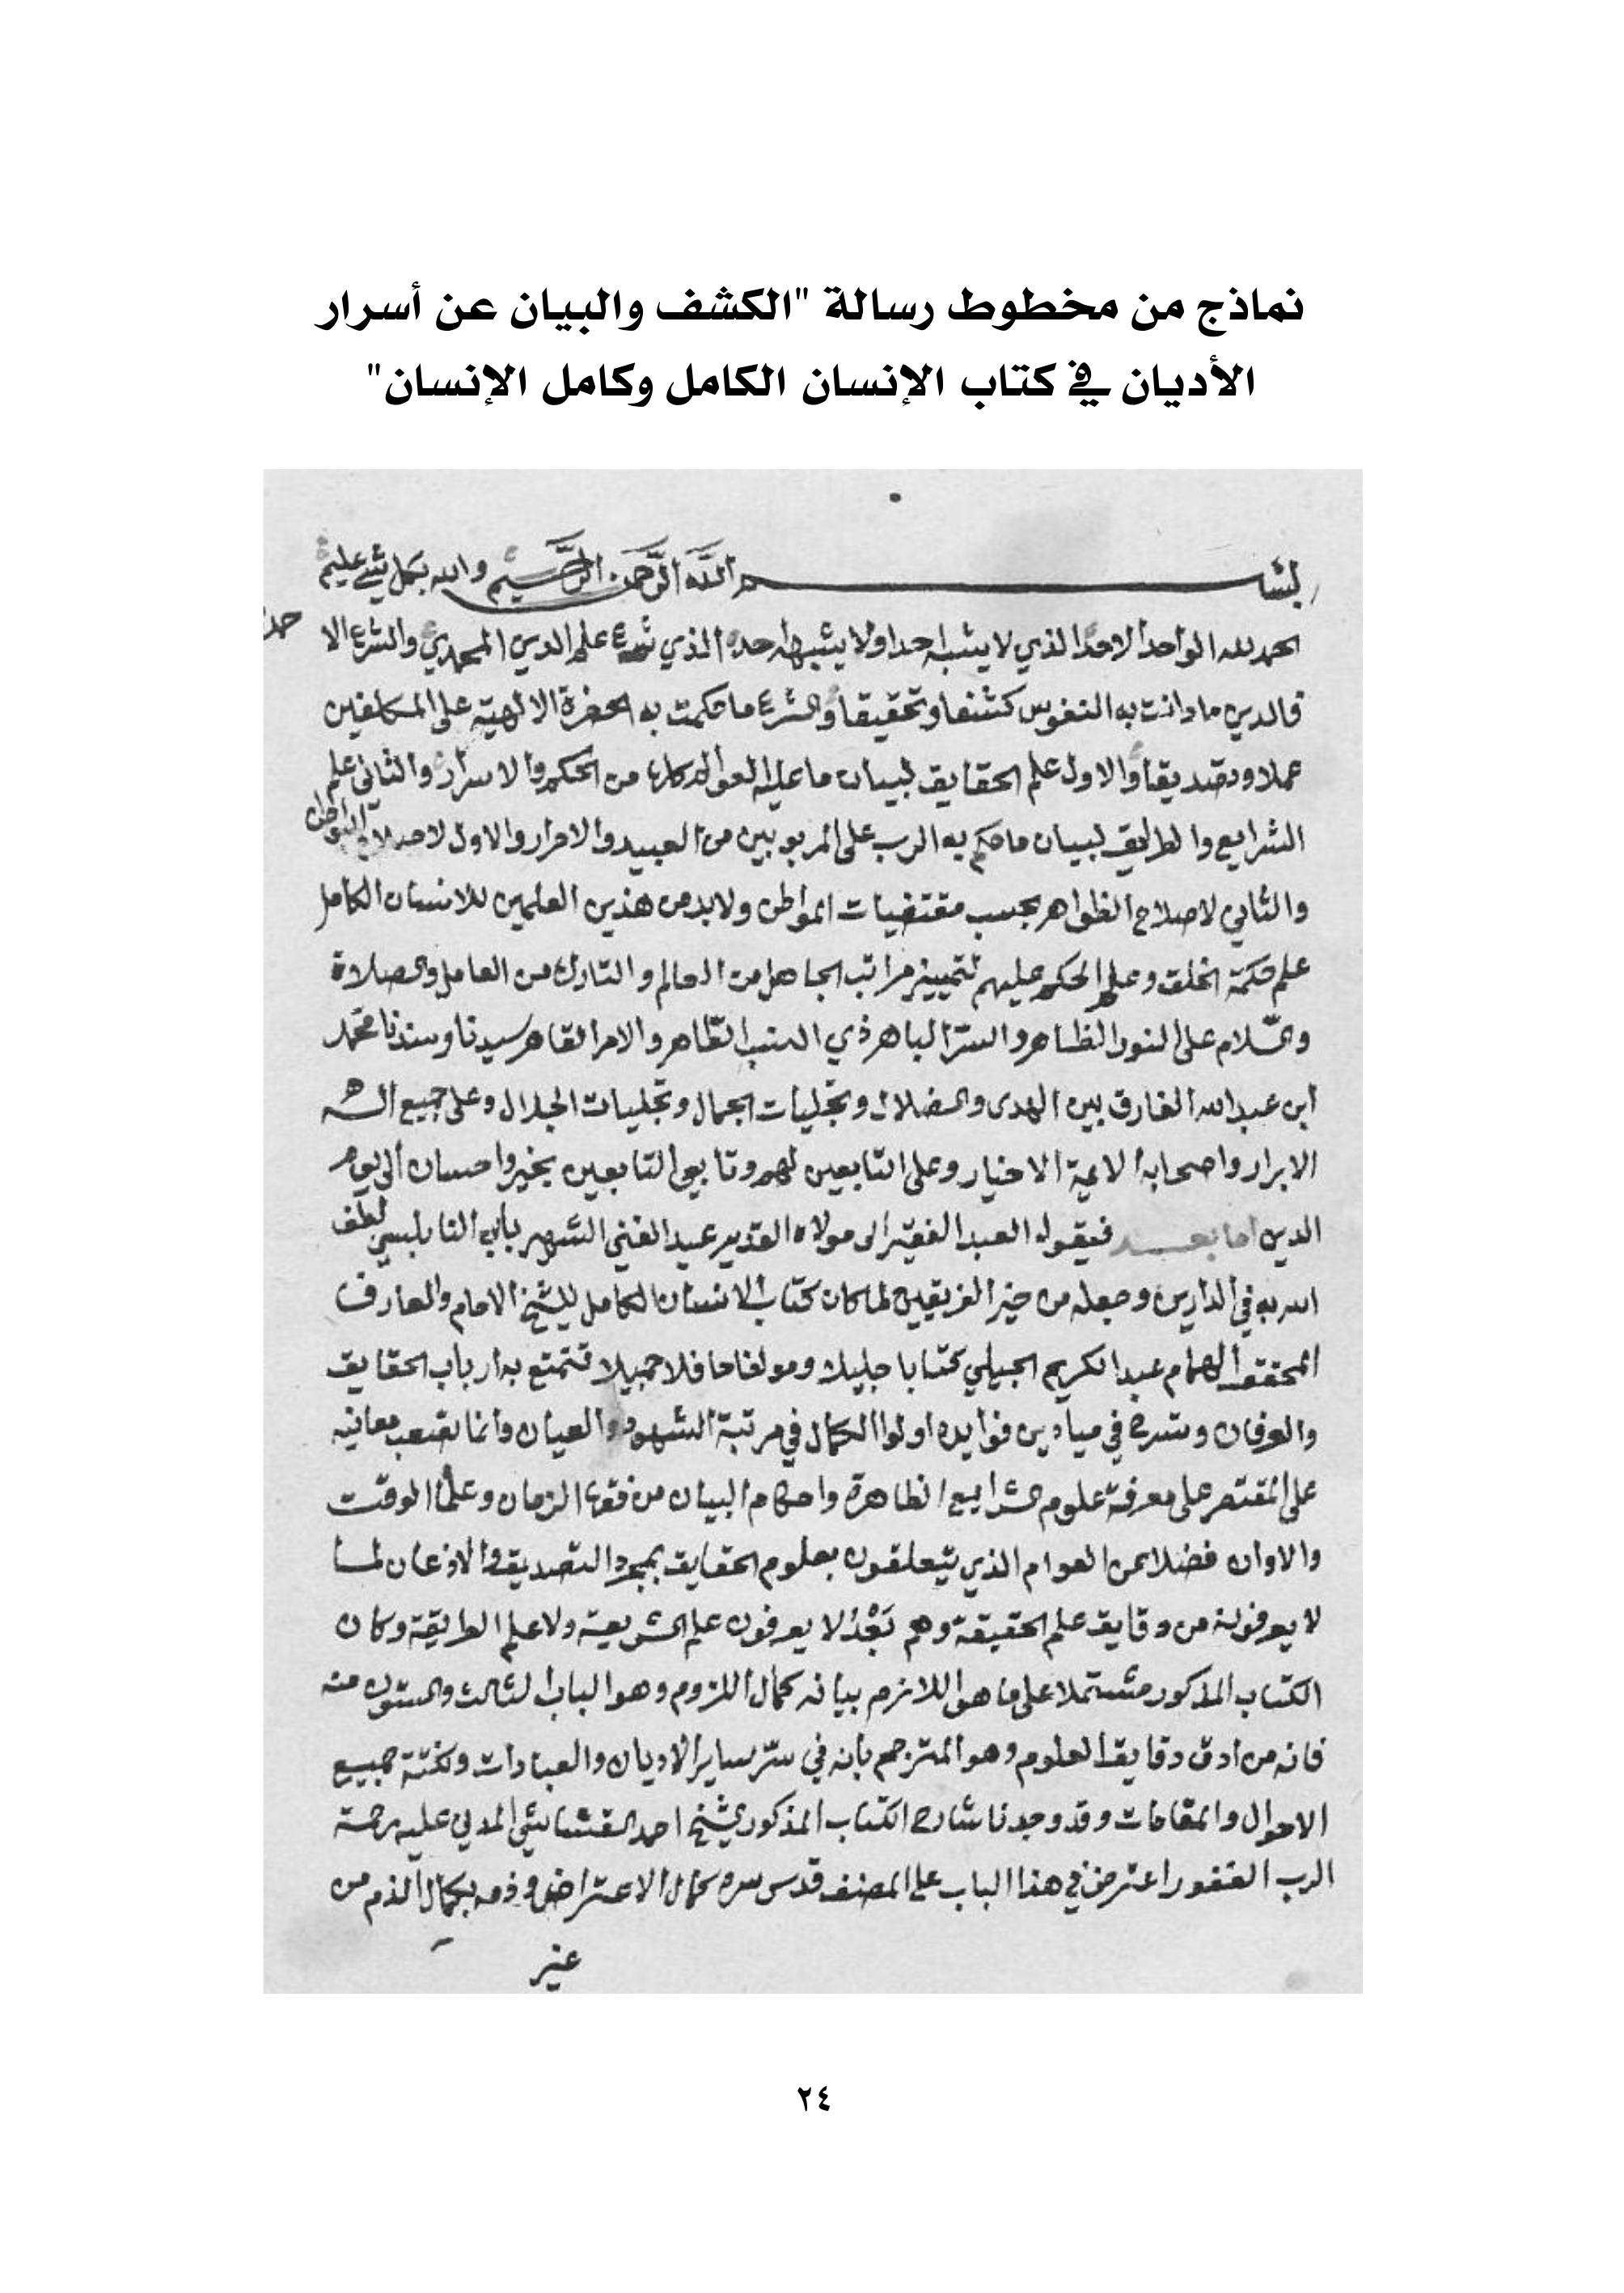 نماذج من مخطوط رسالة "الكشف والبيان عن أسرار
الأديان في كتاب الإنسان الكامل وكامل الإنسان"
بسم الله الرحمن الرحيم والله بكل شيء عليم
الحمد لله الواحد الاحد الذي لا يشبه احدا ولا يشبهه احد الذي شرع علم الدين المحمدي والشرع الا
فالدين ما دانت به النفوس كشفا وتحقيقا والشرع ما حكمت به الحضرة الالهية على المكلفين
عملا وتصديقا والاول علم الحقايق لبيان ما عليه العوالم كلها من الحكم والاسرار والثاني علم
الشرايع والطرايق لبيان ما حكم به الرب على المربوبين من العبيد والاحرار والاول لاصلاح البواطن
والثاني لاصلاح الظواهر بحسب مقتضيات المواطن ولا بد من هذين العلمين للانسان الكامل
علم حكمة الخلق وعلم الحكم عليهم لتمييز مراتب الجاهل من العالم والتارك من العامل والصلاة
والسلام على النور الظاهر والسر الباهر ذي النسب الطاهر والامر القاهر سيدنا وسندنا محمد
ابن عبد الله الفارق بين الهدى والضلال وتجليات الجمال وتجليات الجلال وعلى جميع اله
الابرار واصحابه الائمة الاخيار وعلى التابعين لهم وتابعي التابعين بخير واحسان الى يوم
الدين اما بعد فيقول العبد الفقير الى مولاه القدير عبد الغني الشهير بابن النابلسي لطف
الله به في الدارين وجعله من خير الفريقين لما كان كتاب الانسان الكامل للشيخ الامام والعارف
المحقق الهمام عبد الكريم الجيلي كتابا جليلا ومولفا حافلا جميلا تتمتع به ارباب الحقايق
والعرفان وتسرح في ميادين فوايده اولوا الكمال في مرتبة الشهود والعيان وانما تصعب معانيه
على المقتصر على معرفة علوم الشرايع الظاهرة واحكام البيان من فقهاء الزمان وعلماء الوقت
والاوان فضلا عن العوام الذي يتعلقون بعلوم الحقايق بمجرد التصديق والاذعان لما
لا يعرفونه من دقايق علم الحقيقة وهم بَعْدُ لا يعرفون علم الشريعة ولا علم الطريقة وكان
الكتاب المذكور مشتملا على ما هو اللازم بيانه كمال اللزوم وهو الباب الثالث والستون منه
فانه من ادق دقايق العلوم وهو المترجم بانه في سر ساير الاديان والعبادات ونكتة جميع
الاحوال والمقامات وقد وجدنا شارح الكتاب المذكور الشيخ احمد القشاشي المدني عليه رحمة
الرب الغفور اعترض في هذا الباب على المصنف قدس سره كمال الاعتراض وذمه بكمال الذم من
غير
٢٤